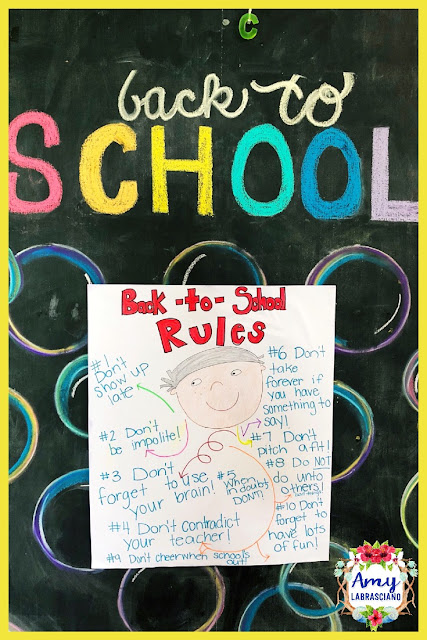 C
back to
SCHOOL
Back-to-School
Rules
#1
Don't
show up
late
#2 Don't
be impolite!
#3 Don't
forget to use
your brain!
#4 Don't contradict
your teacher!
#5
When
in doubt,
DON'T!
#6 Don't
take
forever if
you have
something to
say!
#7 Don't
pitch a fit!
#8 Do NOT
do unto
others!
#9 Don't cheer when school is
out!
#10 Don't
forget to
have lots
of fun!
Amy
LABRASCIANO